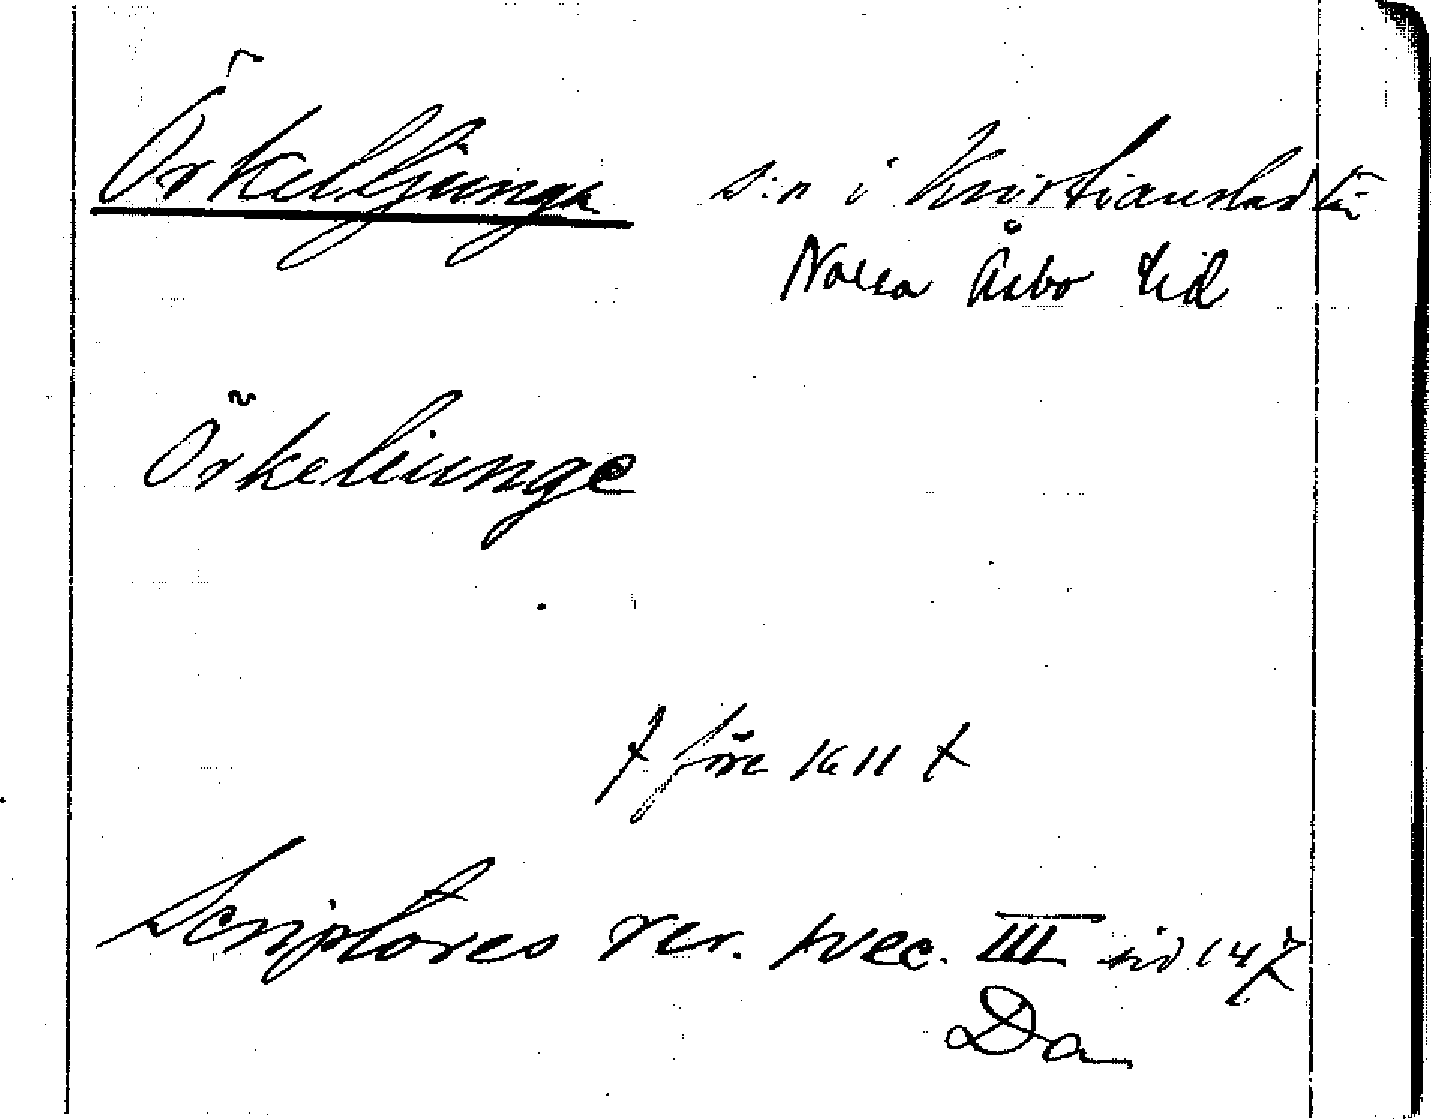 Örkelljunga s:n i Kristianstad län
Norra Åsbo hd
Örkeliunge
† före 1611 †
Scriptores rer. svec. III sid 147
Da